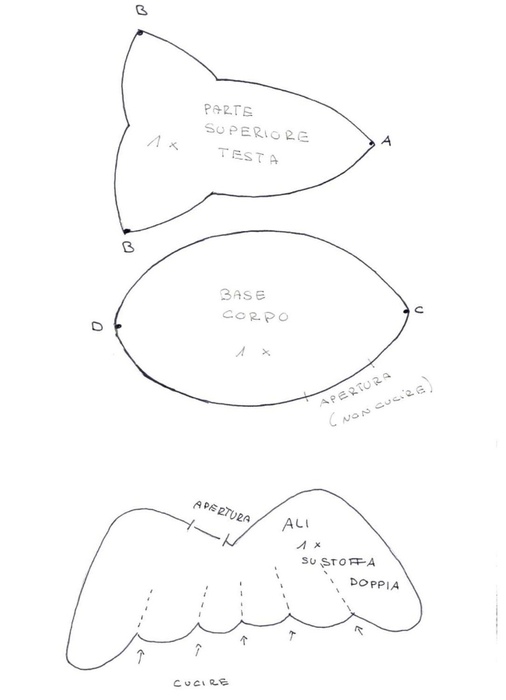 B
PARTE
SUPERIORE
TESTA
1 x
A
B
BASE
CORPO
1 x
D
C
APERTURA
(NON CUCIRE)
APERTURA
ALI
1 x
SU STOFFA
DOPPIA
CUCIRE